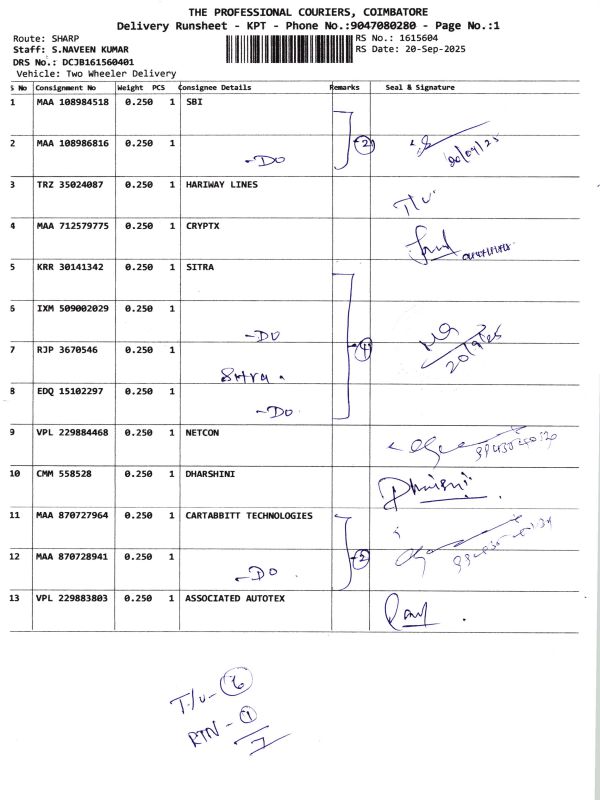 THE PROFESSIONAL COURIERS, COIMBATORE
Delivery Runsheet - KPT - Phone No.:9047080280 - Page No.:1
Route: SHARP
RS No.: 1615604
Staff: S.NAVEEN KUMAR
RS Date: 20-Sep-2025
DRS No.: DCJB161560401
Vehicle: Two Wheeler Delivery
S No Consignment No Weight PCS Consignee Details Remarks Seal & Signature
1 MAA 108984518 0.250 1 SBI
2 MAA 108986816 0.250 1
-DO 2 20/09/25
3 TRZ 35024087 0.250 1 HARIWAY LINES
T/U
4 MAA 712579775 0.250 1 CRYPTX
5 KRR 30141342 0.250 1 SITRA
6 IXM 509002029 0.250 1
-DO
7 RJP 3670546 0.250 1 4
Sitra. 20/9/25
8 EDQ 15102297 0.250 1
-DO
9 VPL 229884468 0.250 1 NETCON
10 CMM 558528 0.250 1 DHARSHINI
Dharshini
11 MAA 870727964 0.250 1 CARTABBITT TECHNOLOGIES
12 MAA 870728941 0.250 1 2
-DO
13 VPL 229883803 0.250 1 ASSOCIATED AUTOTEX
T/U- 6
RTN - 1
7